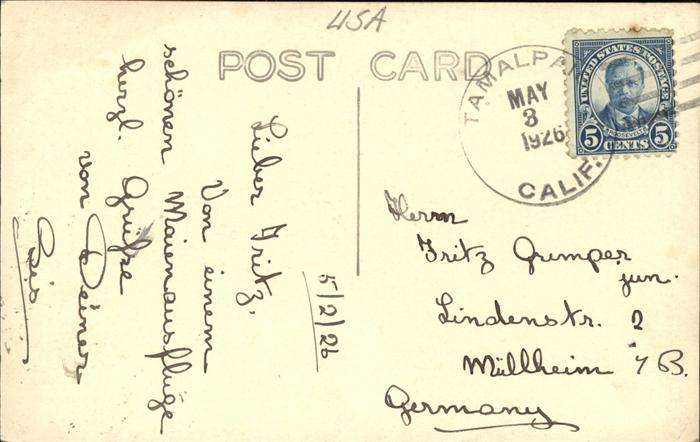 USA
POST CARD
TAMALPA
MAY
3
1926
CALIF.
UNITED STATES POSTAGE
ROOSEVELT
5 CENTS 5
5/2/26
Lieber Fritz,
Von einem
schönen Maienausfluge
herzl. Grüße
von Deiner
Herrn
Fritz Grumper
jun.
Lindenstr. 2
Müllheim i/B.
Germany